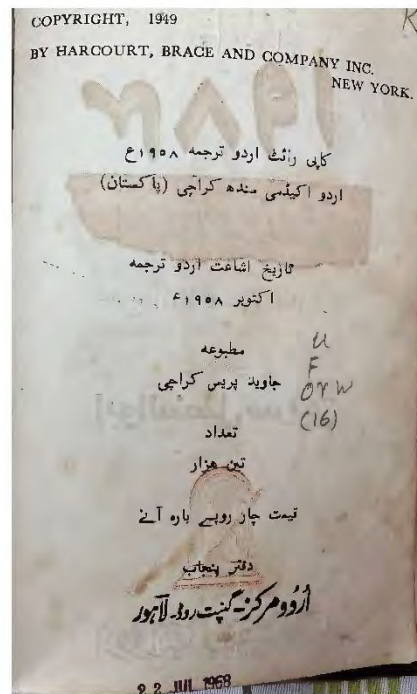 COPYRIGHT, 1949
BY HARCOURT, BRACE AND COMPANY INC.
NEW YORK.
کاپی رائٹ اردو ترجمہ ۱۹۵۸ع
اردو اکیڈمی سندھ کراچی (پاکستان)
تاریخ اشاعت اردو ترجمہ
اکتوبر ۱۹۵۸ء
مطبوعہ
جاوید پریس کراچی
تعداد
تین ہزار
قیمت چار روپے بارہ آنے
دفتر پنجاب
اُردو مرکز - گنپت روڈ - لاہور
U
F
Orw
(16)
22 JUL 1968